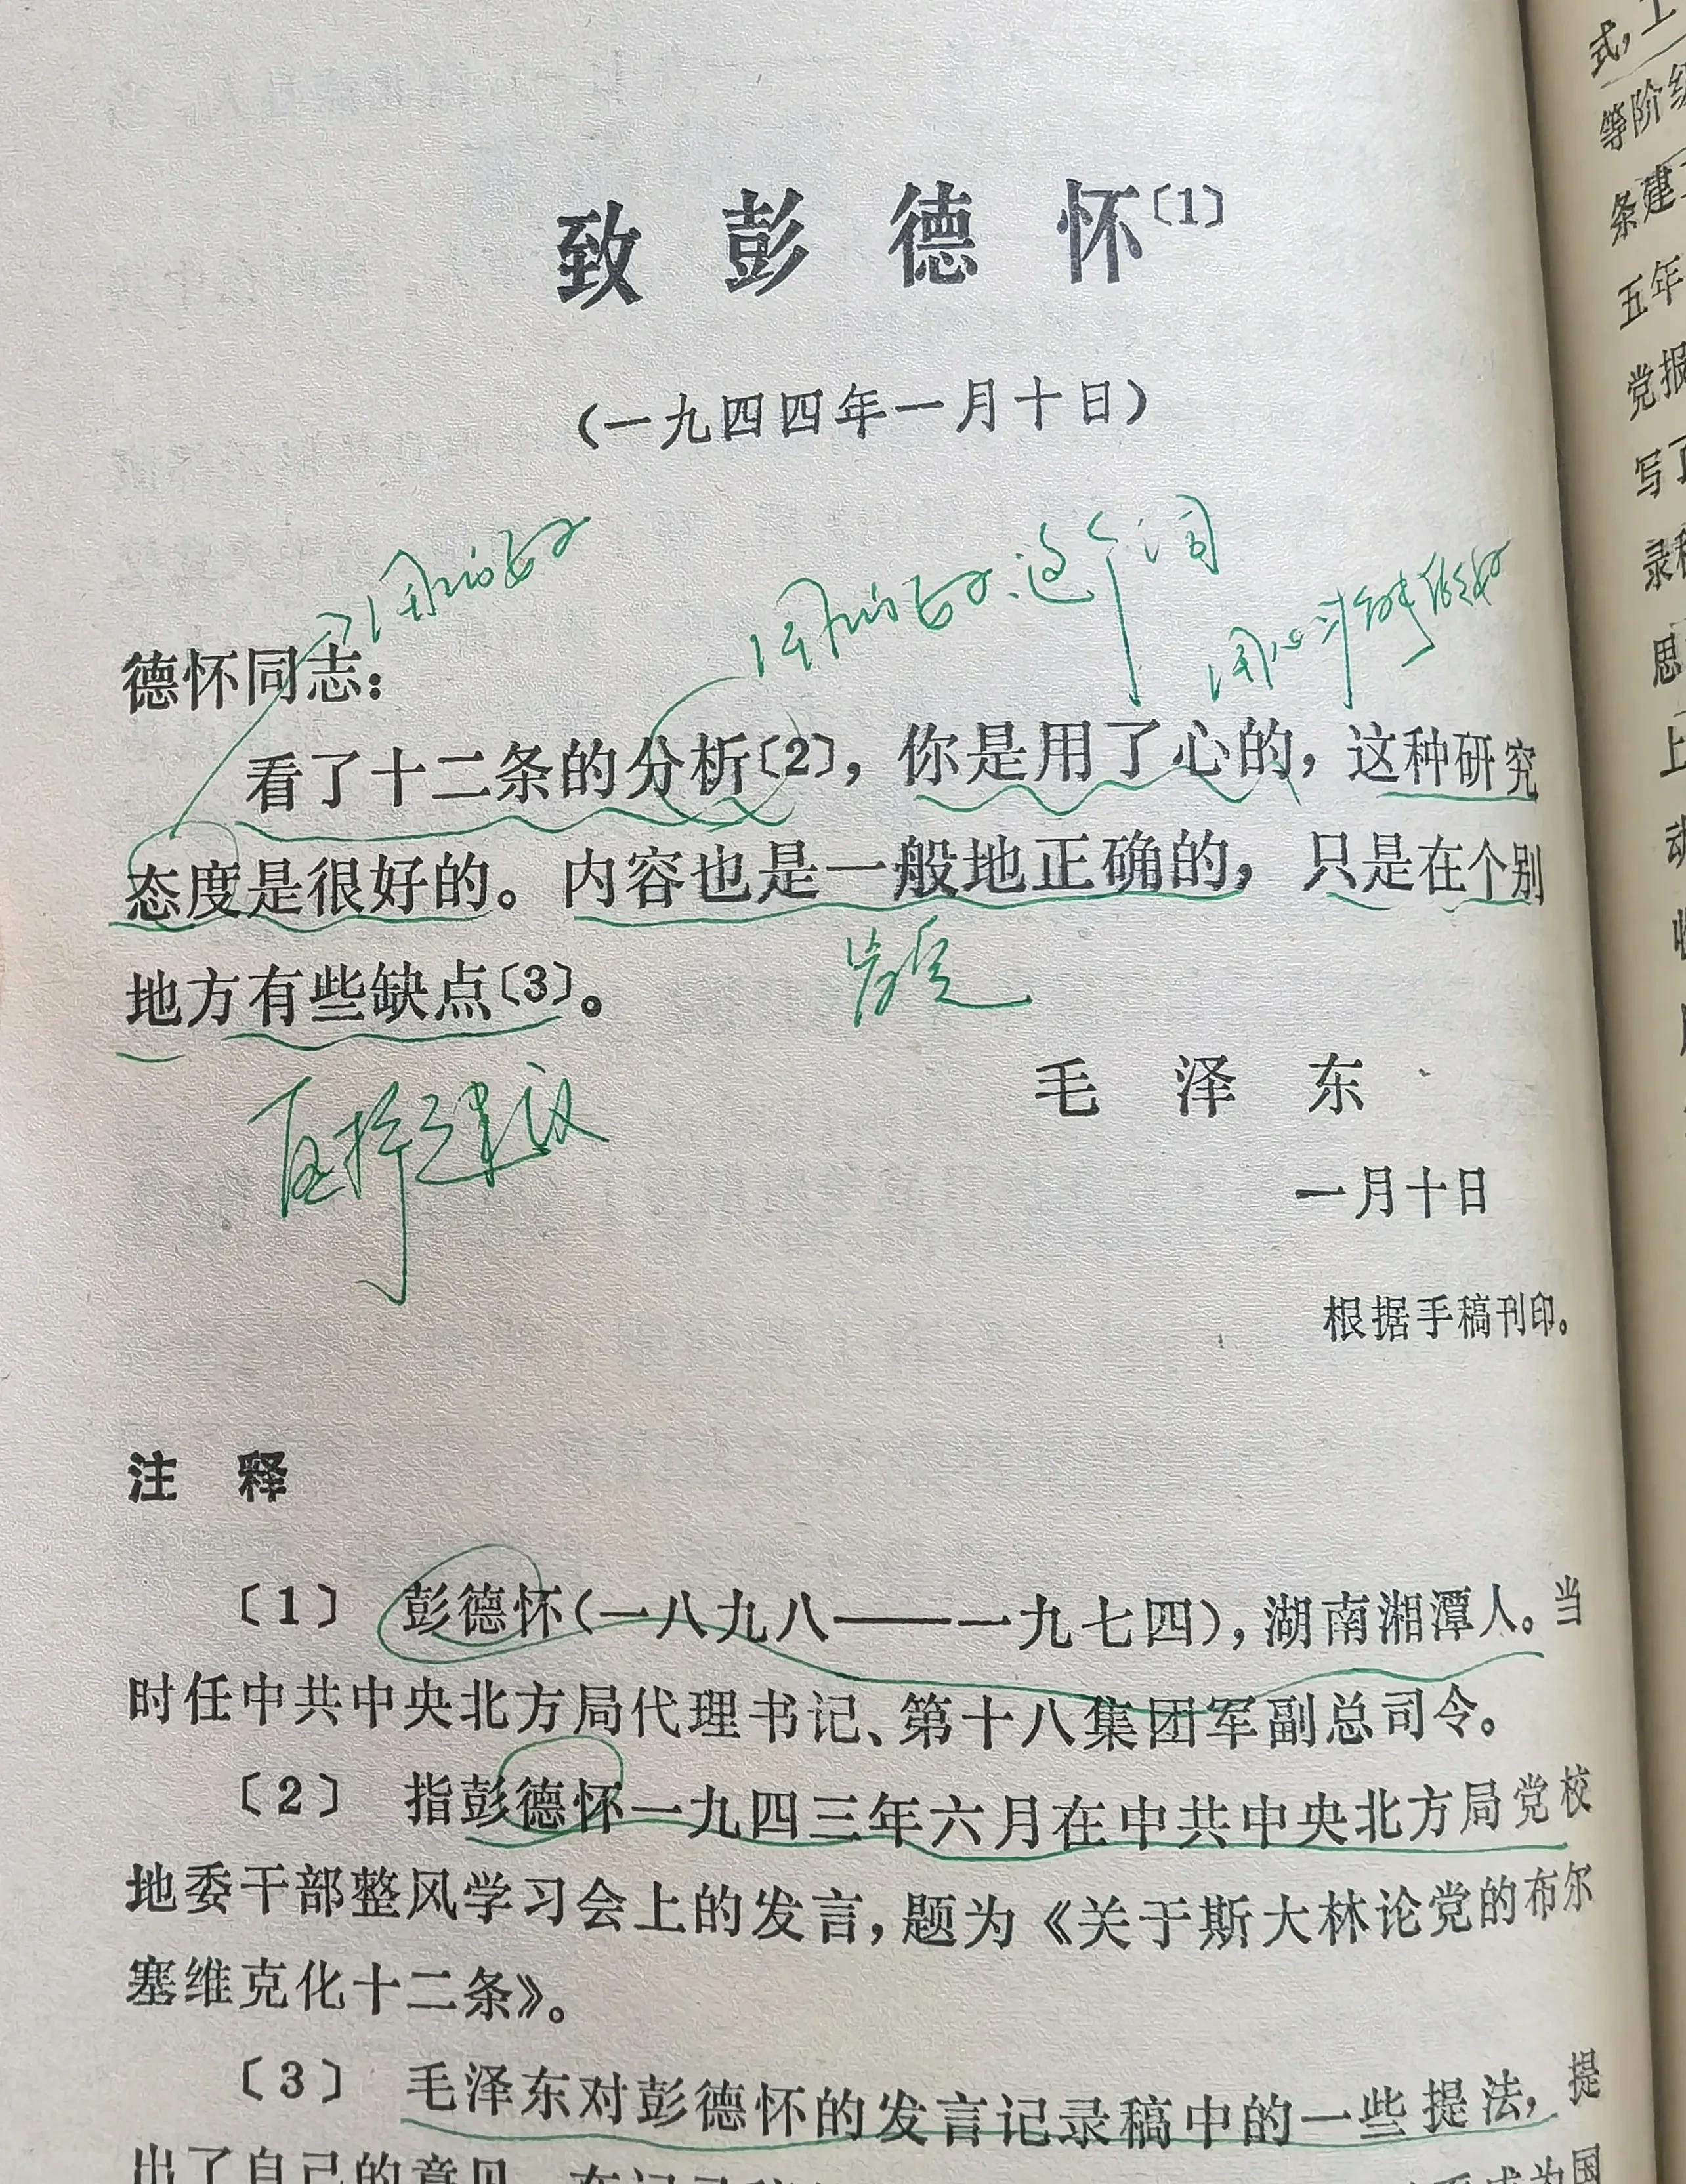 致彭德怀〔1〕
(一九四四年一月十日)
德怀同志:
看了十二条的分析〔2〕,你是用了心的,这种研究
态度是很好的。内容也是一般地正确的,只是在个别
地方有些缺点〔3〕。
肯定
直接建议
毛泽东
一月十日
根据手稿刊印。
注释
〔1〕 彭德怀(一八九八——一九七四),湖南湘潭人。当
时任中共中央北方局代理书记、第十八集团军副总司令。
〔2〕 指彭德怀一九四三年六月在中共中央北方局党校
地委干部整风学习会上的发言,题为《关于斯大林论党的布尔
塞维克化十二条》。
〔3〕 毛泽东对彭德怀的发言记录稿中的一些提法,提
出了自己的意见
式,
等阶级
条建
五年
党报
写
录
思
上